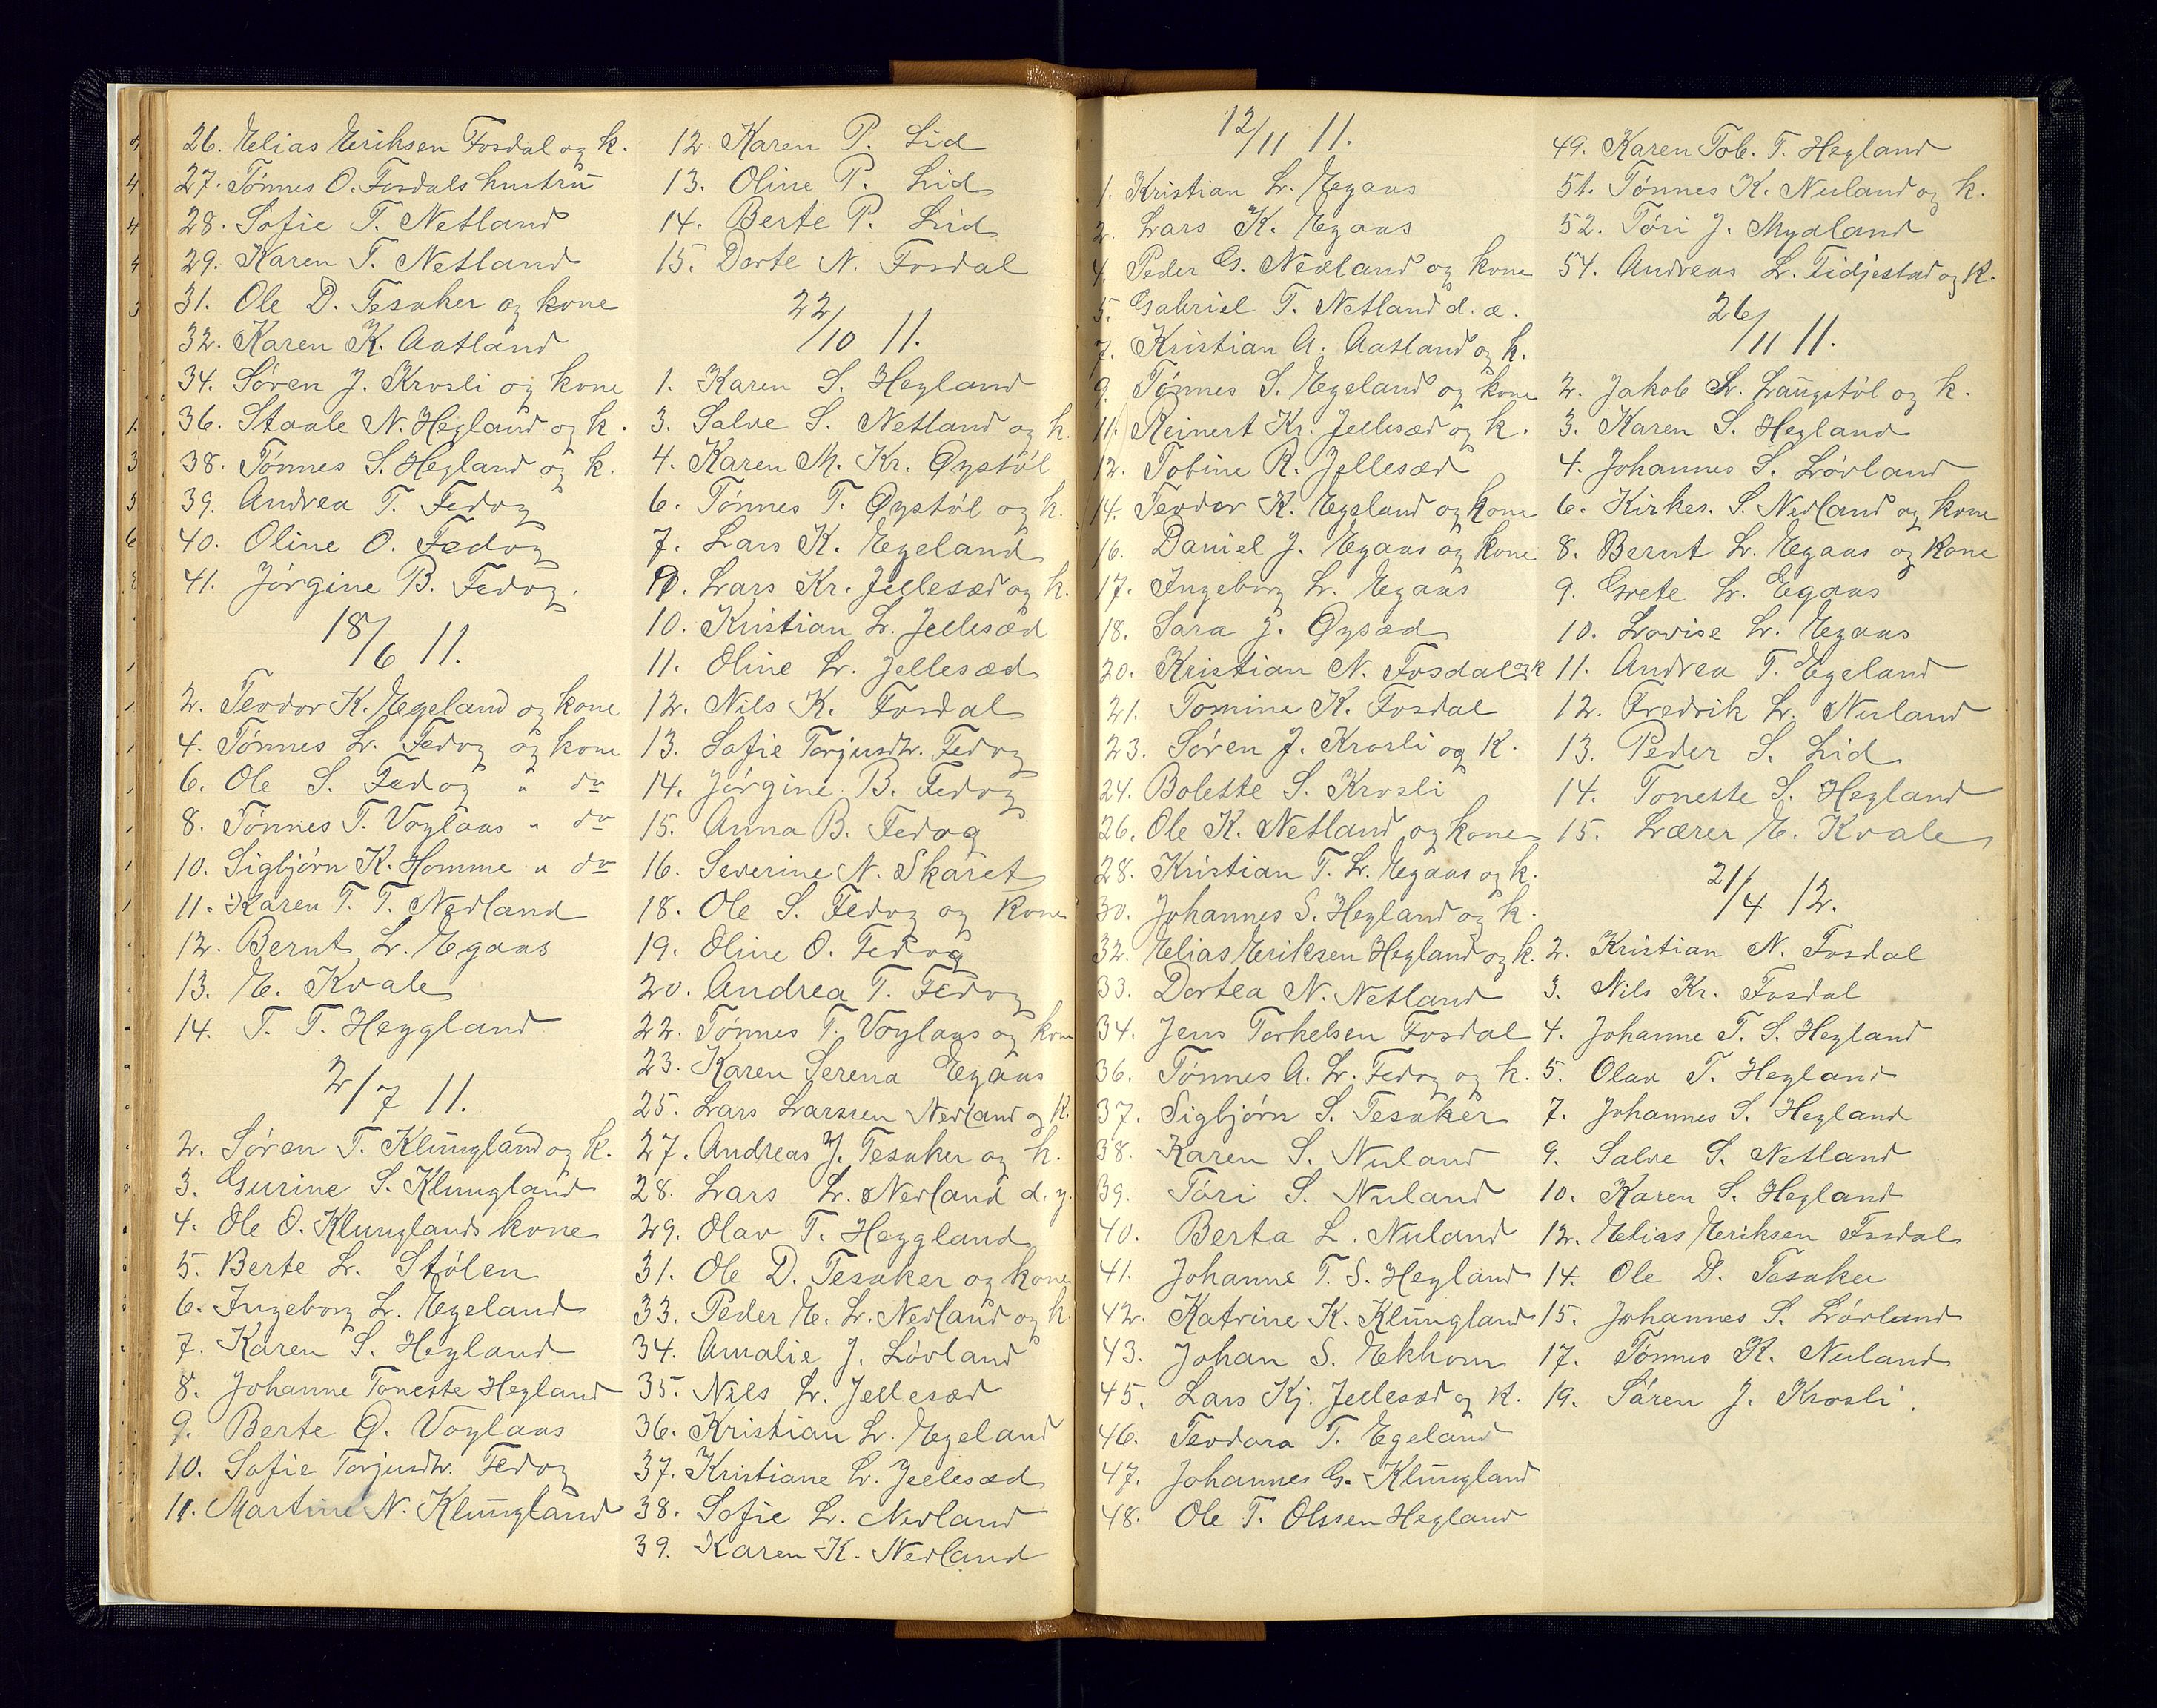 26. Elias Eriksen Fosdal og k.
27. Tönnes O. Fosdals hustrü
28. Sofie T. Netland
29. Karen T. Netland
31. Ole D. Tesaker og kone
32. Karen K. Aatland
34. Søren J. Krosli og kone
36. Staale N. Hegland og k.
38. Tönnes S. Hegland og k.
39. Andrea T. Fedog
40. Oline O. Fedog
41. Jörgine B. Fedog.
18/6 11.
2. Teodor K. Egeland og kone
4. Tönnes L. Fedog og kone
6. Ole S. Fedog " do
8. Tönnes T. Voglaas " do
10. Sigbjörn K. Homme " do
11. Karen T. T. Nedland
12. Bernt L. Egaas
13. E. Kvale
14. T. T. Heggland
2/7 11.
2. Sören T. Klüngland og k.
3. Gurine S. Klungland
4. Ole O. Klunglands kone
5. Berte L. Stölen
6. Ingeborg L. Egeland
7. Karen S. Hegland
8. Johanne Toneste Hegland
9. Berte G. Voglaas
10. Sofie Torjusdtr. Fedog
11. Martine N. Klüngland
12. Karen P. Lid
13. Oline P. Lid
14. Berte P. Lid
15. Dorte N. Fosdal
22/10 11.
1. Karen S. Hegland
3. Salve S. Netland og k.
4. Karen M. Kr. Øystöl
6. Tönnes T. Øystöl og k.
7. Lars K. Egeland
9. Lars Kr. Jellesæd og k.
10. Kristian L. Jellesæd
11. Oline L. Jellesæd
12. Nils K. Fosdal
13. Sofie Torjusdtr. Fedog
14. Jörgine B. Fedog
15. Anna B. Fedog
16. Severine N. Skaret
18. Ole S. Fedog og kone
19. Oline O. Fedog
20. Andrea T. Fedog
22. Tönnes T. Voglaas og kone
23. Karen Serena Egaas
25. Lars Larssen Nedland og k.
27. Andreas J. Tesaker og k.
28. Lars L. Nedland d. y.
29. Olav T. Heggland
31. Ole D. Tesaker og kone
33. Peder E. L. Nedland og k.
34. Amalie J. Lövland
35. Nils L. Jellesæd
36. Kristian L. Egeland
37. Kristiane L. Jellesæd
38. Sofie L. Nedland
39. Karen K. Nedland
12/11 11.
1. Kristian L. Egaas
2. Lars K. Egaas
4. Peder G. Nedland og kone
5. Gabriel T. Netland d. æ.
7. Kristian A. Aatland og k.
9. Tönnes S. Egeland og kone
11. Reinert Kr. Jellesæd og k.
12. Tobine R. Jellesæd
14. Teodor K. Egeland og kone
16. Daniel J. Egaas og kone
17. Ingeborg L. Egaas
18. Sara J. Øysæd
20. Kristian N. Fosdal og k
21. Tomine K. Fosdal
23. Sören J. Krosli og k.
24. Bolette S. Krosli
26. Ole K. Netland og kone
28. Kristian T. L. Egaas og k.
30. Johannes S. Hegland og k.
32. Elias Eriksen Hegland og k.
33. Dortea N. Netland
34. Jens Terkelsen Fosdal
36. Tönnes A. L. Fedog og k.
37. Sigbjörn S. Tesaker
38. Karen S. Nuland
39. Töri S. Nuland
40. Berta L. Nuland
41. Johanne T. S. Hegland
42. Katrine K. Klüngland
43. Johan S. Ekhom
45. Lars Kj. Jellesæd og k.
46. Teodora T. Egeland
47. Johannes G. Klüngland
48. Ole T. Olssen Hegland
49. Karen Tob. T. Hegland
51. Tönnes K. Nuland og k.
52. Töri J. Mydland
54. Andreas L. Tidjestad og k.
26/11 11.
2. Jakob L. Laugstöl og k.
3. Karen S. Hegland
4. Johannes S. Lövland
6. Kirkes. S. Nedland og kone
8. Bernt L. Egaas og kone
9. Grete L. Egaas
10. Lovise L. Egaas
11. Andrea T. Egeland
12. Fredrik L. Nuland
13. Peder S. Lid
14. Tonette S. Hegland
15. Lærer E. Kvale
21/4 12.
2. Kristian N. Fosdal
3. Nils Kr. Fosdal
4. Johanne T. S. Hegland
5. Olav T. Hegland
7. Johannes S. Hegland
9. Salve S. Netland
10. Karen S. Hegland
12. Elias Eriksen Fosdal
14. Ole D. Tesaker
15. Johannes S. Lövland
17. Tönnes K. Nuland
19. Sören J. Krosli.